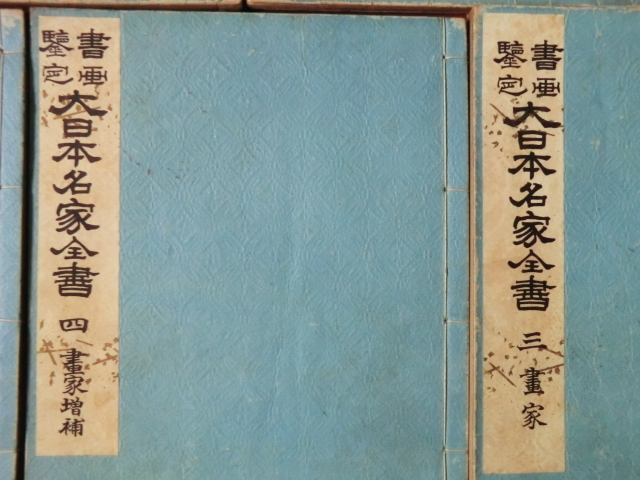 書画
鑒定
大日本名家全書
三
畫家
書画
鑒定
大日本名家全書
四
畫家増補